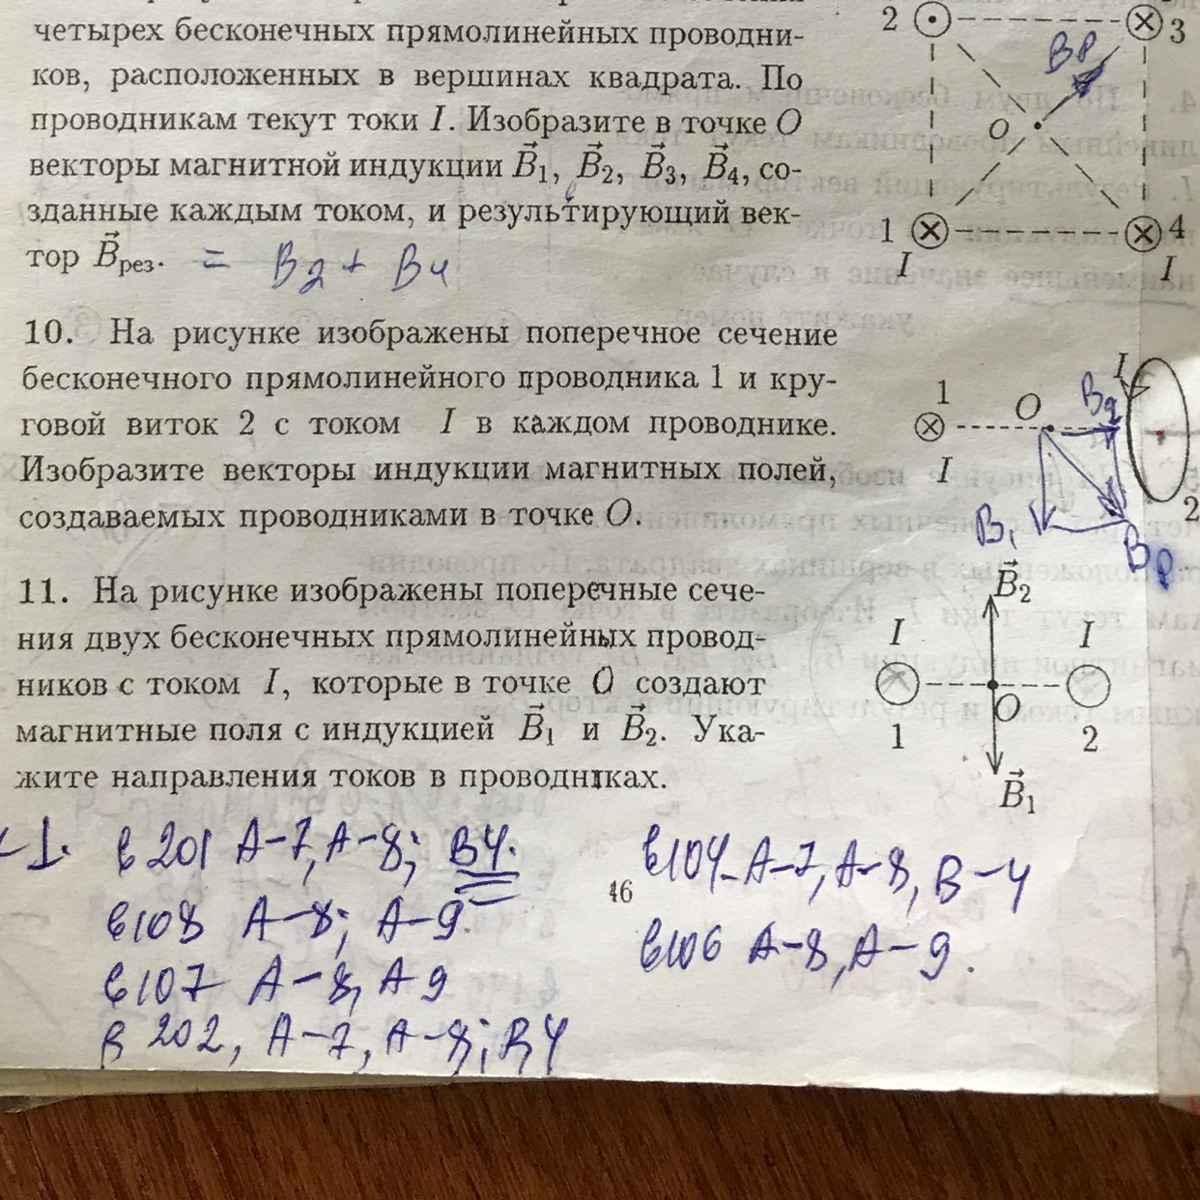 четырех бесконечных прямолинейных проводни-
ков, расположенных в вершинах квадрата. По
проводникам текут токи I. Изобразите в точке O
векторы магнитной индукции B⃗₁, B⃗₂, B⃗₃, B⃗₄, со-
зданные каждым током, и результирующий век-
тор B⃗рез. = B2 + B4
2
3
Bр
O
1
4
I
I
10. На рисунке изображены поперечное сечение
бесконечного прямолинейного проводника 1 и кру-
говой виток 2 с током I в каждом проводнике.
Изобразите векторы индукции магнитных полей,
создаваемых проводниками в точке O.
1
O
B2
I
I
2
B1
Bр
11. На рисунке изображены поперечные сече-
ния двух бесконечных прямолинейных провод-
ников с током I, которые в точке O создают
магнитные поля с индукцией B⃗₁ и B⃗₂. Ука-
жите направления токов в проводниках.
B⃗₂
I
I
O
1
2
B⃗₁
1. в 201 А-7, А-8; В4.
в108 А-8; А-9.
в107 А-8, А9
в 202, А-7, А-8; В4
46
в104-А-7, А-8, В-4
в106 А-8, А-9.